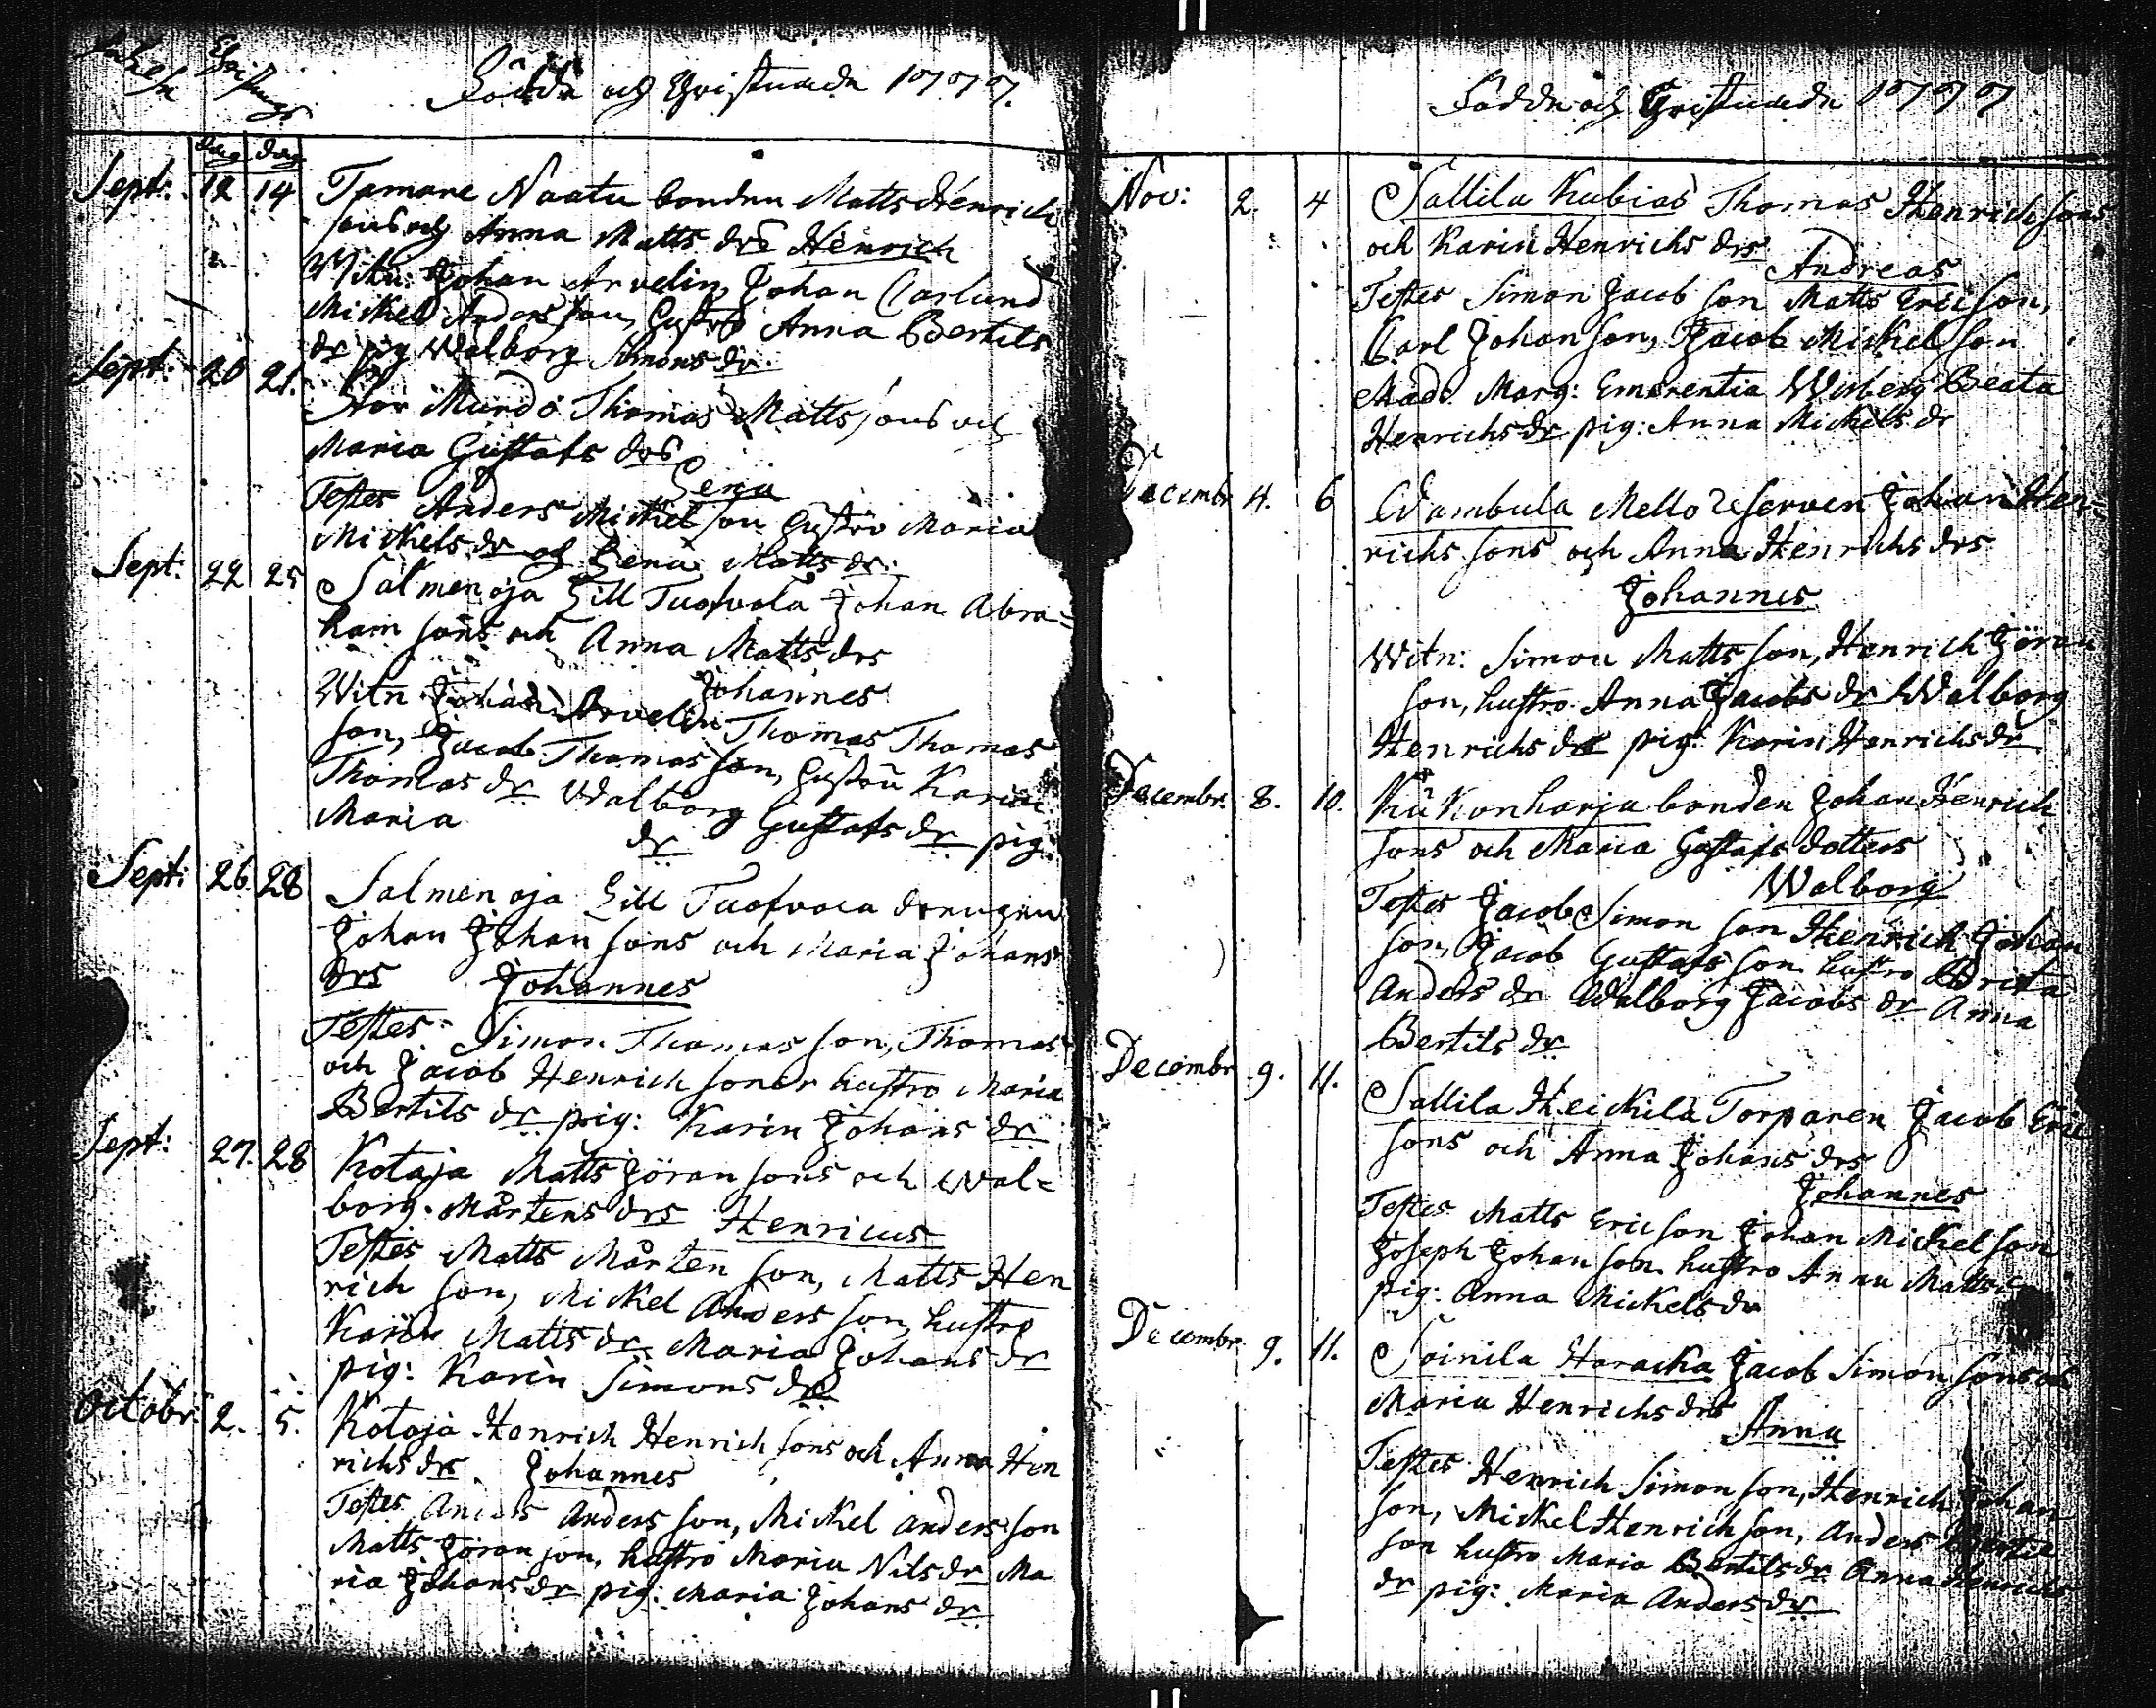 Födde och Christnade 1777.
dag dag
Sept: 12 14 Tamare Naatu bonden Matts Henrich
sons och Anna Matts drs Henrich
Witn: Johan Arvelin, Johan Carlund
Mickel Anders son, hustro Anna Bertils
dr pig Walborg Simons dr
Sept: 20 21. Stor Murdo Thomas Matts sons och
Maria Gustafs drs
Lena
Testes Anders Mickel son hustro Maria
Mickels dr och Lena Matts dr.
Sept: 22 25 Salmenoja Lill Tuofvola Johan Abra=
ham sons och Anna Matts drs
Johannes
Witn Johan Arvelin Thomas Thomas
son, Jacob Thomas son, hustru Karin
Thomas dr Walborg Gustafs dr pig:
Maria dr
Sept: 26. 28 Salmenoja Lill Tuofvola drengen
Johan Johan sons och Maria Johans
drs Johannes
Testes: Simon Thomas son, Thomas
och Jacob Henrich soner hustro Maria
Bertils dr pig: Karin Johans dr
Sept: 27. 28 Kotaja Matts Jöran sons och Wal=
borg Mårtens drs Henricus
Testes Matts Mårten son, Matts Hen
rich son, Mickel Anders son, hustro
Karin Matts dr Maria Johans dr
pig: Karin Simons dr
Octobr: 2. 5. Kotaja Henrich Henrich sons och Anna Hen
richs drs Johannes
Testes Anders Anders son, Mickel Anders son
Matts Jöran son, hustro Maria Nils dr Ma
ria Johans dr pig: Maria Johans dr
Födde och Christnade 1777
Nov: 2. 4 Sallila Kubias Thomas Henrich sons
och Karin Henrichs drs
Andreas
Testes Simon Jacob son Matts Eric son,
Carl Johan son, Jacob Mickel son
Mad: Marg: Emerentia Wisberg Beata
Henrichs dr pig: Anna Mickels dr
Decembr 4. 6 Wambula Mello Reserven Johan Hen=
richs sons och Anna Henrichs drs
Johannes
Witn: Simon Matts son, Henrich Jöran
son, hustro Anna Jacobs dr Walborg
Henrichs dr pig: Karin Henrichs dr
Decembr. 8. 10. Kükonharja bonden Johan Henrich
sons och Maria Gustafs dotters
Walborg
Testes Jacob Simon son Henrich Johan
son, Jacob Gustafs son hustro Brita
Anders dr Walborg Jacobs dr Anna
Bertils dr
Decembr 9. 11. Sallila Heickilä Torparen Jacob Eric
sons och Anna Johans drs
Johannes
Testes Matts Eric son Johan Mickel son
Joseph Johan son hustro Anna Matts
pig: Anna Mickels dr
Decembr. 9. 11. Soinila Haracka Jacob Simon sons och
Maria Henrichs drs
Anna
Testes Henrich Simon son, Henrich Johan
son, Mickel Henrich son, Anders
son hustro Maria Bertils dr Anna Henrichs
dr pig: Maria Anders dr